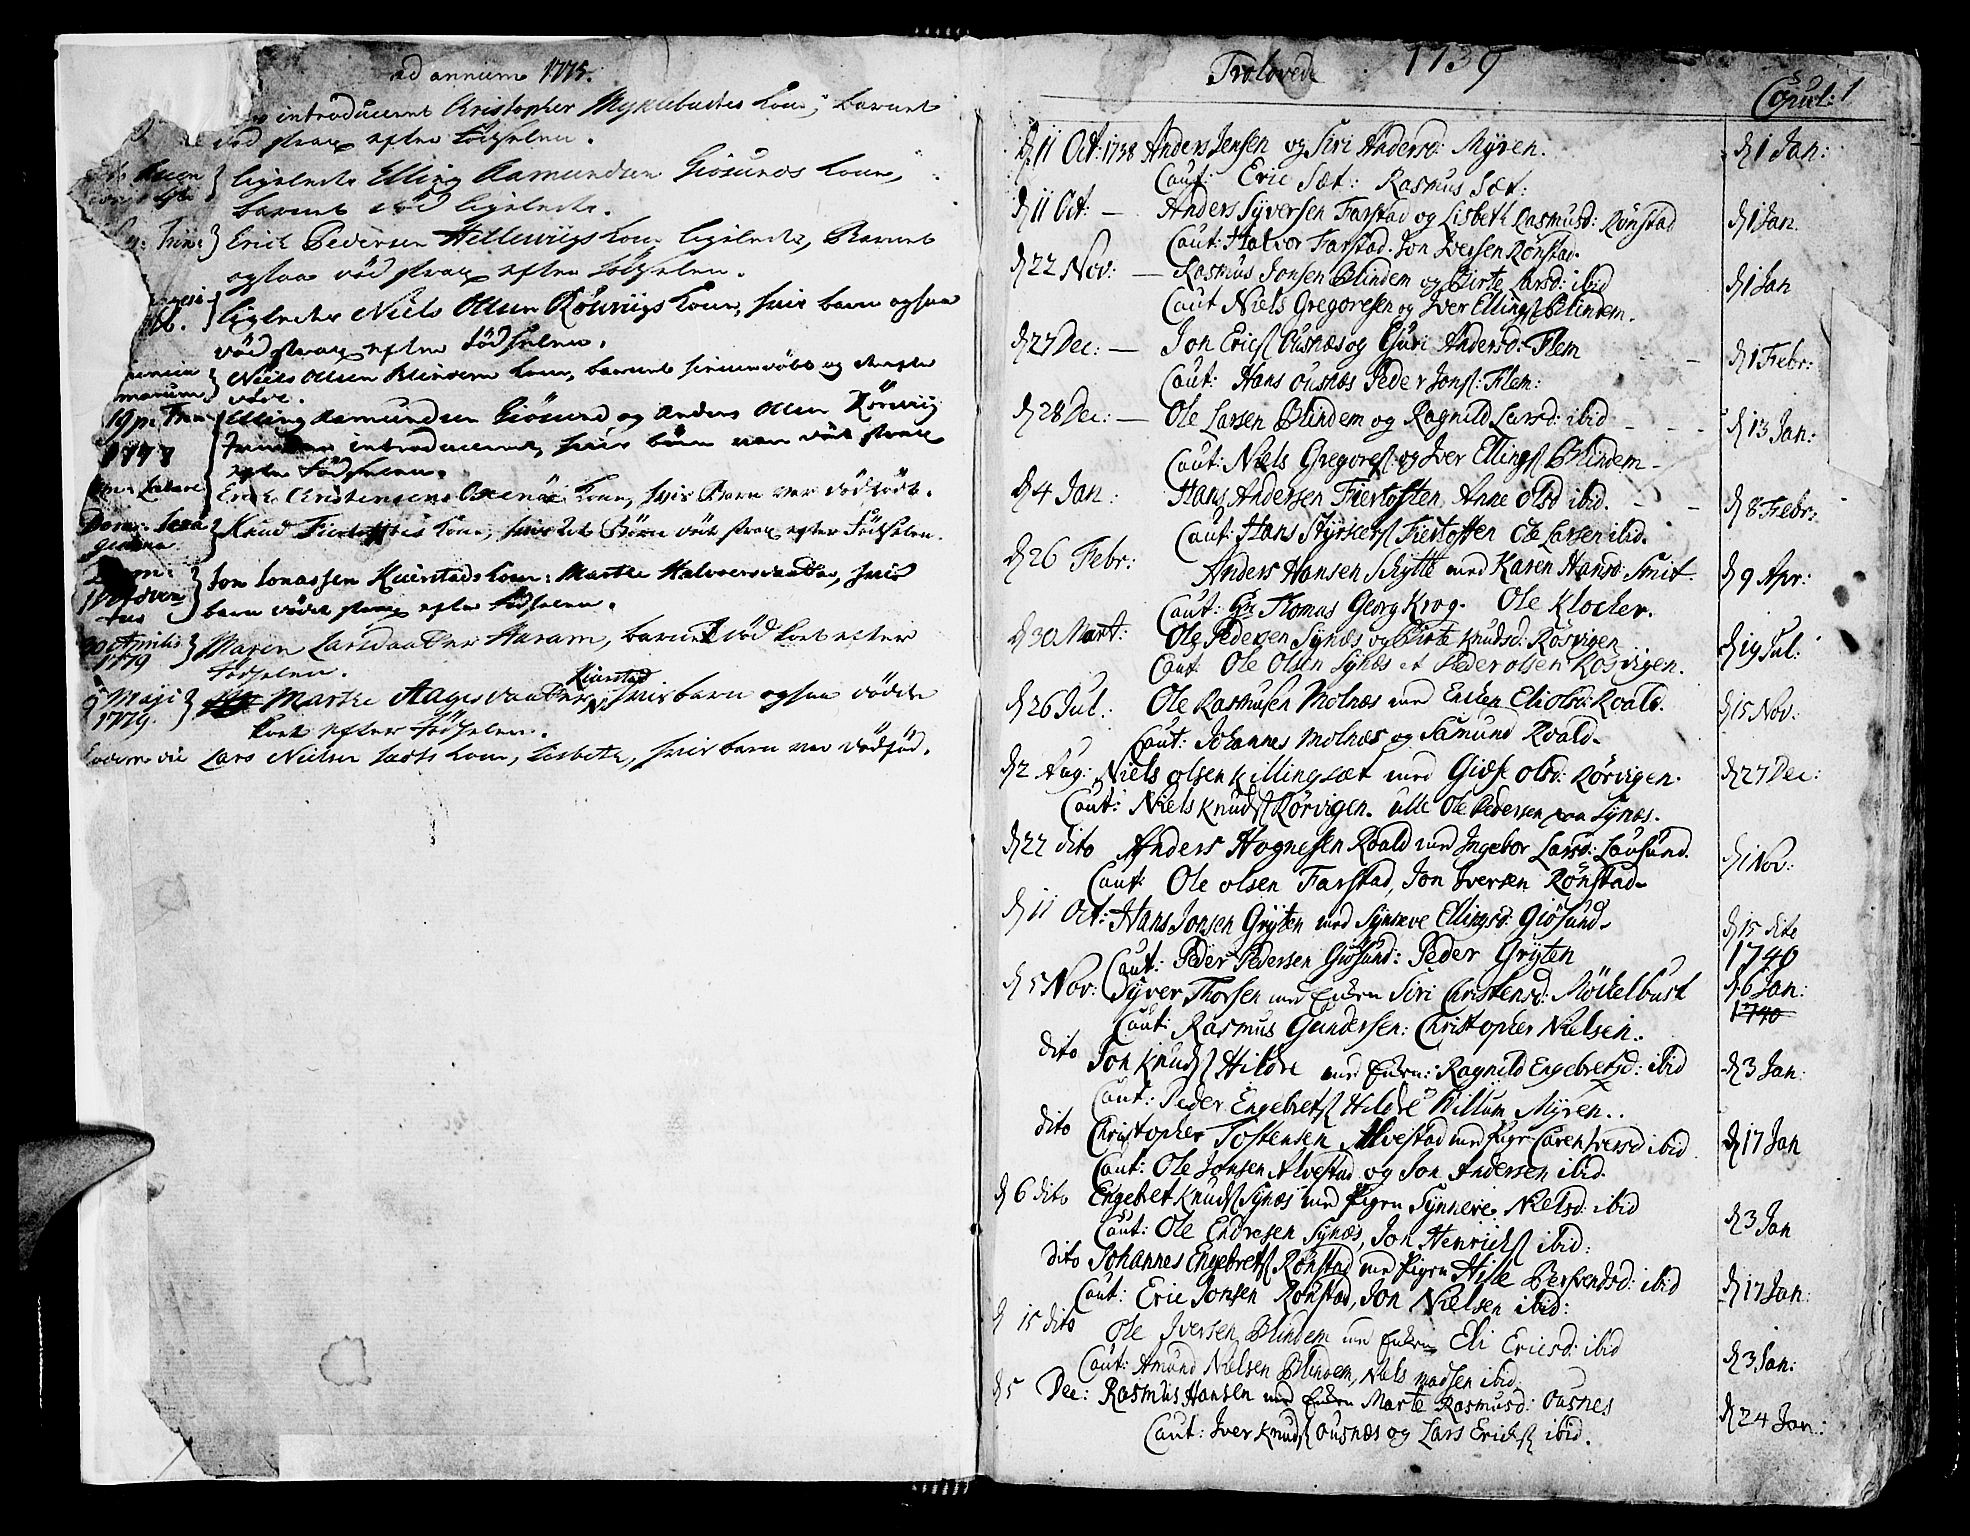 ad annum 1775.
introduceret Christopher Myklebustes Kone, barnet
død strax efter Fødselen.
ligeledes Elling Asmundsen Giøsunds Kone,
barnet død ligeledes.
Trin: Erich Pedersen Hellewiigs Kone ligeledes, Barnet
ogsaa død strax efter Fødselen.
ligeledes Niels Olsen Rörwiigs Kone, hvis barn ogsaa
død strax efter Fødselen.
Niels Olsen Blindem Kone, barnet hiemmedöbt og derefter
døde.
19 p: Trin: Elling Asmundsen Giösund og Anders Olsen Rörwiig
1777 introduceret, hvis börn var död strax
efter Fødselen.
Erich Christensens Kone, hvis Barn var dødfødt.
Dom: Sexa Knud Fiertoftes Kone, hvis Börn död strax efter Fødselen.
gesima
Jon Jonassen Kiærstads Kone: Marthe Halvorsdaatter, hvis
barn døde strax efter Fødselen.
Aprilis Maren Larsdaatter Haram, barnet död kort efter
1779 Fødselen.
Kierstad
9 Maji Marthe Aagesdaatter, hvis barn ogsaa dödde
1779. kort efter Fødselen.
Eodem die Lars Nielsen Kone, Lisbeth, hvis barn var dødfød.
Trolovede 1739 Copul: 1
d 11 Oct: 1738 Anders Jensen og Siri Andersd: Myren. d 1 Jan:
Caut: Eric Sæt: Rasmus Sæt:
d 11 Oct: — Anders Syversen Farstad og Lisbeth Rasmusd: Rönstad d 1 Jan.
Caut: Halvor Farstad. Jon Iversen Rönstad.
d 22 Nov: — Rasmus Jonsen Blindem og Birte Larsd: ibid d 1 Jan
Caut Niels Gregoresen og Iver Ellings Blindem.
d 27 Dec: — Jon Erics Ousnæs og Guri Andersd: Flem d 1 Febr:
Caut: Hans Ousnæs Peder Jons: Flem:
d 28 Dec: — Ole Larsen Blindem og Ragnild Larsd: ibid d 13 Jan:
Caut: Niels Gregores: og Iver Ellings Blindem
d 4 Jan: Hans Andersen Fiertoften, Anne Olsd ibid. d 8 Febr:
Caut: Hans Styrkers Fiertoften Ole Larsen ibid.
d 26 Febr: Anders Hansen Schytte med Karen Hansd: Smit d 9 Apr:
Caut: Hr Thomas Georg Krog. Ole Klocher.
d 30 Mart: Ole Pedersen Synæs og Birte Knudsd: Rörvigen d 19 Jul:
Caut Ole Olsen Synæs et Peder Olsen Rörvigen.
d 26 Jul: Ole Rasmusen Molnæs med Enken Eli Olsd: Roald. d 15 Nov:
Caut: Johannes Molnæs og Samund Roald.
d 2 Aug: Niels Olsen Killingsæt med Giöse Olsd: Rörvigen. d 27 Dec:
Caut: Niels Knuds Rörvigen. Ole Pedersen paa Synæs.
d 22 dito Anders Hognesen Roald med Ingebor Larsd: Lausund. d 1 Nov:
Caut: Ole Olsen Farstad, Jon Iversen Rönstad.
d 11 Oct: Hans Jonsen Gryten med Synneve Ellingsd: Giösund. d 15 dito
Caut: Peder Pedersen Giösund: Peder Gryten 1740
d 5 Nov: Syver Thorsen med Enken Siri Christensd: Möckelbust d 6 Jan:
Caut: Rasmus Gundersen: Christopher Nielsen. 1740
dito Jon Knuds Hildre med Enken: Ragnild Engebretsd: ibid d 3 Jan:
Caut: Peder Engebrets Hildre Willum Myren.
dito Christopher Tostensen Alvestad med Pige Caren Iversd ibid d 17 Jan
Caut: Ole Jonsen Alvestad og Jon Andersen ibid.
d 6 dito Engebret Knuds Synæs med Pigen Synneve Nielsd: ibid d 3 Jan
Caut: Ole Endresen Synæs, Jon Henrichs ibid:
dito Johannes Engebrets Rönstad med Pigen Hille Bersvendsd: ibid d 17 Jan:
Caut: Eric Jonsen Rönstad, Jon Nielsen ibid:
d 15 dito Ole Iversen Blindem med Enken Eli Ericsd: ibid d 3 Jan:
Caut: Amund Nielsen Blindem, Niels Madsen ibid
d 5 Dec: Rasmus Hansen med Enken Marte Rasmusd: Ousnes d 24 Jan:
Caut: Iver Knuds Ousnæs og Lars Erichs ibid.